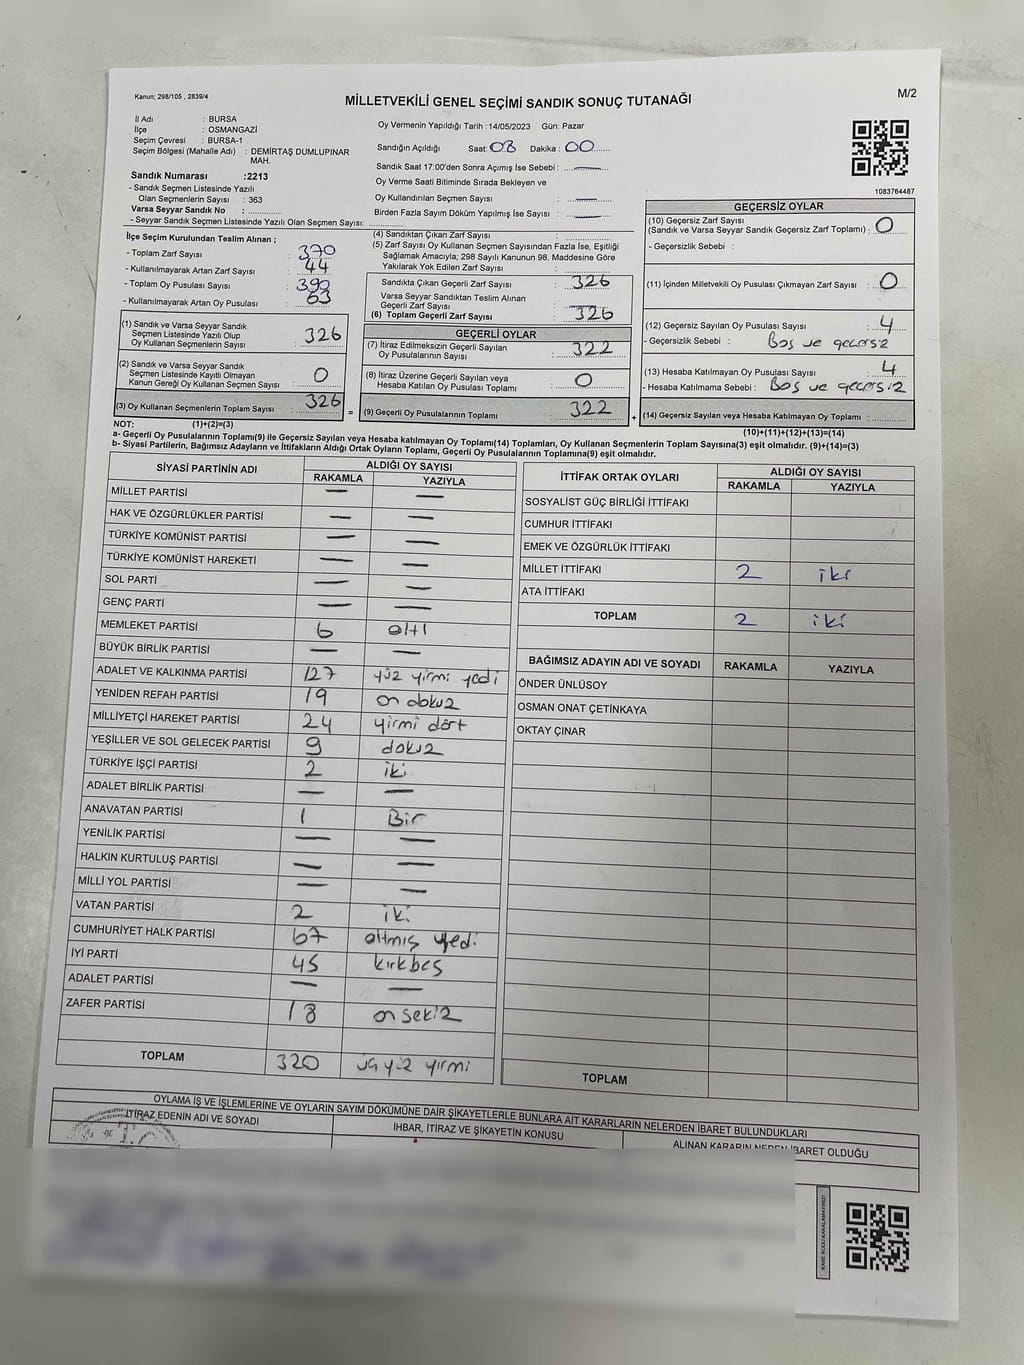 Kanun; 298/105 , 2839/4
MİLLETVEKİLİ GENEL SEÇİMİ SANDIK SONUÇ TUTANAĞI
M/2
İl Adı : BURSA
İlçe : OSMANGAZİ
Seçim Çevresi : BURSA-1
Seçim Bölgesi (Mahalle Adı) : DEMİRTAŞ DUMLUPINAR MAH.
Sandık Numarası :2213
- Sandık Seçmen Listesinde Yazılı
Olan Seçmenlerin Sayısı : 363
Varsa Seyyar Sandık No :
- Seyyar Sandık Seçmen Listesinde Yazılı Olan Seçmen Sayısı:
Oy Vermenin Yapıldığı Tarih :14/05/2023 Gün: Pazar
Sandığın Açıldığı Saat: 08 Dakika : 00
Sandık Saat 17:00'den Sonra Açımış İse Sebebi : —
Oy Verme Saati Bitiminde Sırada Bekleyen ve
Oy Kullandırılan Seçmen Sayısı : —
Birden Fazla Sayım Döküm Yapılmış İse Sayısı : —
1083764487
İlçe Seçim Kurulundan Teslim Alınan ;
- Toplam Zarf Sayısı : 370
- Kullanılmayarak Artan Zarf Sayısı : 44
- Toplam Oy Pusulası Sayısı : 390
- Kullanılmayarak Artan Oy Pusulası : 63
(1) Sandık ve Varsa Seyyar Sandık
Seçmen Listesinde Yazılı Olup
Oy Kullanan Seçmenlerin Sayısı : 326
(2) Sandık ve Varsa Seyyar Sandık
Seçmen Listesinde Kayıtlı Olmayan
Kanun Gereği Oy Kullanan Seçmen Sayısı : 0
(3) Oy Kullanan Seçmenlerin Toplam Sayısı : 326
(4) Sandıktan Çıkan Zarf Sayısı :
(5) Zarf Sayısı Oy Kullanan Seçmen Sayısından Fazla İse, Eşitliği
Sağlamak Amacıyla; 298 Sayılı Kanunun 98. Maddesine Göre
Yakılarak Yok Edilen Zarf Sayısı :
Sandıkta Çıkan Geçerli Zarf Sayısı : 326
Varsa Seyyar Sandıktan Teslim Alınan
Geçerli Zarf Sayısı : —
(6) Toplam Geçerli Zarf Sayısı : 326
GEÇERLİ OYLAR
(7) İtiraz Edilmeksizin Geçerli Sayılan
Oy Pusulalarının Sayısı : 322
(8) İtiraz Üzerine Geçerli Sayılan veya
Hesaba Katılan Oy Pusulası Toplamı : 0
= (9) Geçerli Oy Pusulalarının Toplamı : 322
GEÇERSİZ OYLAR
(10) Geçersiz Zarf Sayısı
(Sandık ve Varsa Seyyar Sandık Geçersiz Zarf Toplamı) : 0
- Geçersizlik Sebebi :
(11) İçinden Milletvekili Oy Pusulası Çıkmayan Zarf Sayısı : 0
(12) Geçersiz Sayılan Oy Pusulası Sayısı : 4
- Geçersizlik Sebebi : Boş ve geçersiz
(13) Hesaba Katılmayan Oy Pusulası Sayısı : 4
- Hesaba Katılmama Sebebi : Boş ve geçersiz
+ (14) Geçersiz Sayılan veya Hesaba Katılmayan Oy Toplamı :
NOT: (1)+(2)=(3)
(10)+(11)+(12)+(13)=(14)
a- Geçerli Oy Pusulalarının Toplamı(9) ile Geçersiz Sayılan veya Hesaba katılmayan Oy Toplamı(14) Toplamları, Oy Kullanan Seçmenlerin Toplam Sayısına(3) eşit olmalıdır. (9)+(14)=(3)
b- Siyasi Partilerin, Bağımsız Adayların ve İttifakların Aldığı Ortak Oyların Toplamı, Geçerli Oy Pusulalarının Toplamına(9) eşit olmalıdır.
SİYASİ PARTİNİN ADI ALDIĞI OY SAYISI
RAKAMLA YAZIYLA
MİLLET PARTİSİ — —
HAK VE ÖZGÜRLÜKLER PARTİSİ — —
TÜRKİYE KOMÜNİST PARTİSİ — —
TÜRKİYE KOMÜNİST HAREKETİ — —
SOL PARTİ — —
GENÇ PARTİ — —
MEMLEKET PARTİSİ 6 altı
BÜYÜK BİRLİK PARTİSİ — —
ADALET VE KALKINMA PARTİSİ 127 yüz yirmi yedi
YENİDEN REFAH PARTİSİ 19 on dokuz
MİLLİYETÇİ HAREKET PARTİSİ 24 yirmi dört
YEŞİLLER VE SOL GELECEK PARTİSİ 9 dokuz
TÜRKİYE İŞÇİ PARTİSİ 2 iki
ADALET BİRLİK PARTİSİ — —
ANAVATAN PARTİSİ 1 Bir
YENİLİK PARTİSİ — —
HALKIN KURTULUŞ PARTİSİ — —
MİLLİ YOL PARTİSİ — —
VATAN PARTİSİ 2 iki
CUMHURİYET HALK PARTİSİ 67 altmış yedi
İYİ PARTİ 45 kırkbeş
ADALET PARTİSİ — —
ZAFER PARTİSİ 18 onsekiz
TOPLAM 320 üç yüz yirmi
İTTİFAK ORTAK OYLARI ALDIĞI OY SAYISI
RAKAMLA YAZIYLA
SOSYALİST GÜÇ BİRLİĞİ İTTİFAKI
CUMHUR İTTİFAKI
EMEK VE ÖZGÜRLÜK İTTİFAKI
MİLLET İTTİFAKI 2 iki
ATA İTTİFAKI
TOPLAM 2 iki
BAĞIMSIZ ADAYIN ADI VE SOYADI RAKAMLA YAZIYLA
ÖNDER ÜNLÜSOY
OSMAN ONAT ÇETİNKAYA
OKTAY ÇINAR
TOPLAM
OYLAMA İŞ VE İŞLEMLERİNE VE OYLARIN SAYIM DÖKÜMÜNE DAİR ŞİKAYETLERLE BUNLARA AİT KARARLARIN NELERDEN İBARET BULUNDUKLARI
İTİRAZ EDENİN ADI VE SOYADI
İHBAR, İTİRAZ VE ŞİKAYETİN KONUSU
ALINAN KARARIN NEDEN İBARET OLDUĞU